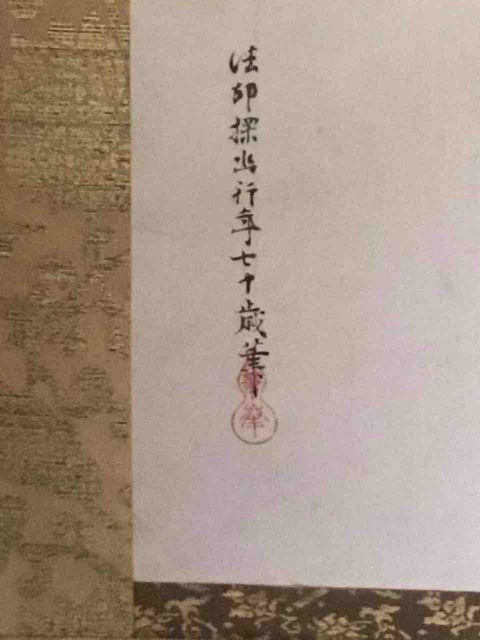 法印探幽行年七十歳筆